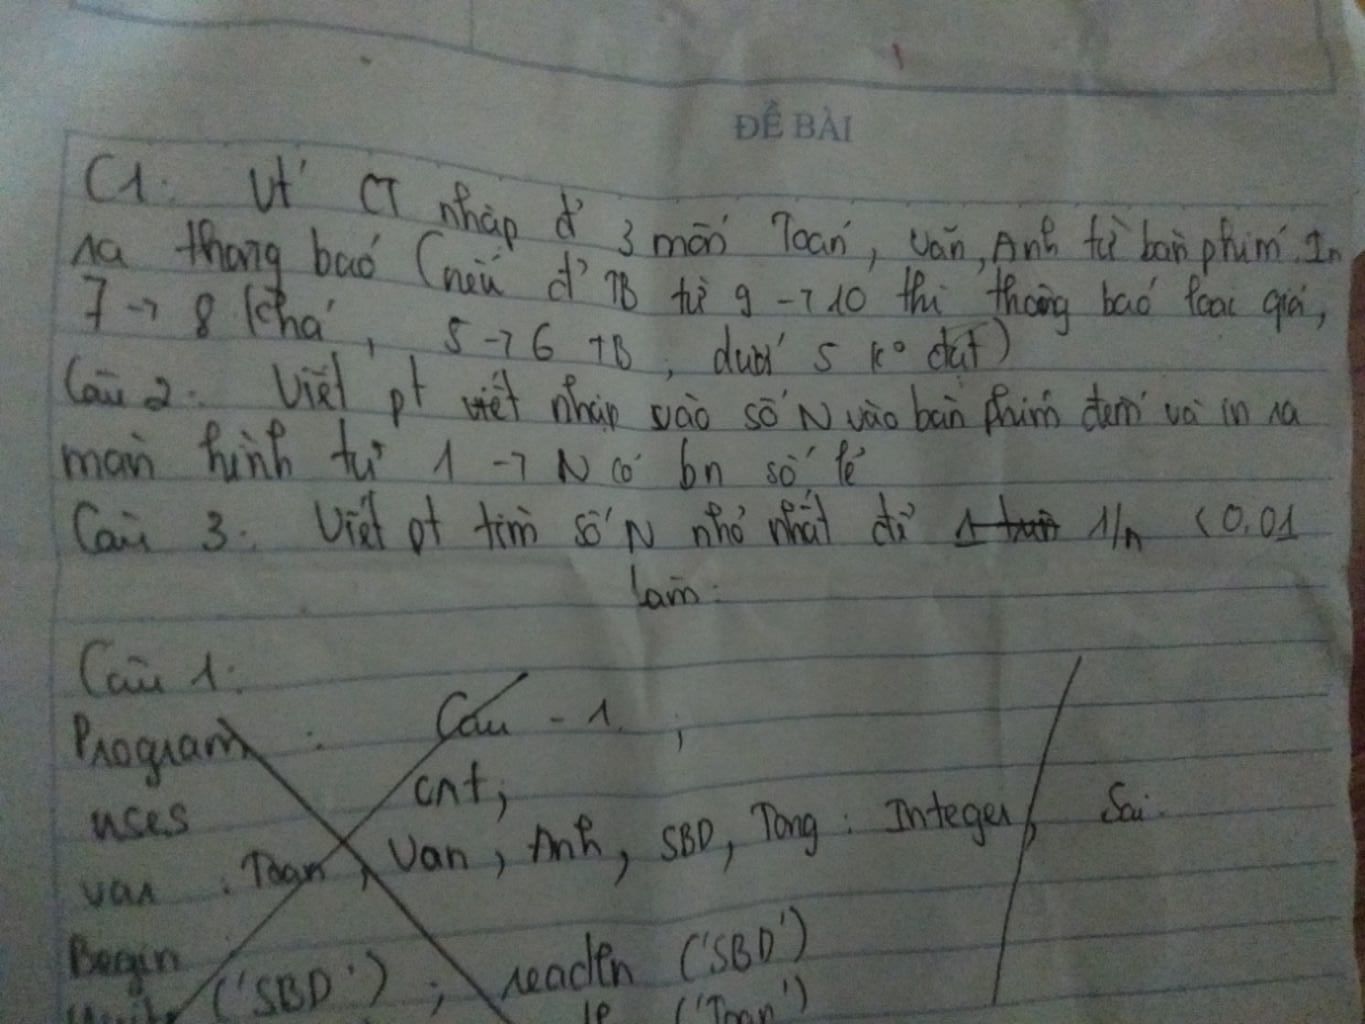 ĐỀ BÀI
C1: Vt CT nhập đ' 3 môn Toán, văn, Anh từ bàn phím. In
ra thông báo (nếu đ' TB từ 9 -> 10 thì thông báo loại giỏi,
7 -> 8 khá, 5 -> 6 TB, dưới 5 k° đạt)
Câu 2: Viết pt viết nhập vào số N vào bàn phím đếm và in ra
màn hình từ 1 -> N có bn số lẻ
Câu 3: Viết pt tìm số N nhỏ nhất để 1/n < 0.01
Làm:
Câu 1:
Program : Câu - 1 ;
uses cnt;
var : Toan, Van, Anh, SBD, Tong : Integer, Sai
Begin
('SBD') ; readln ('SBD')
('Toan')